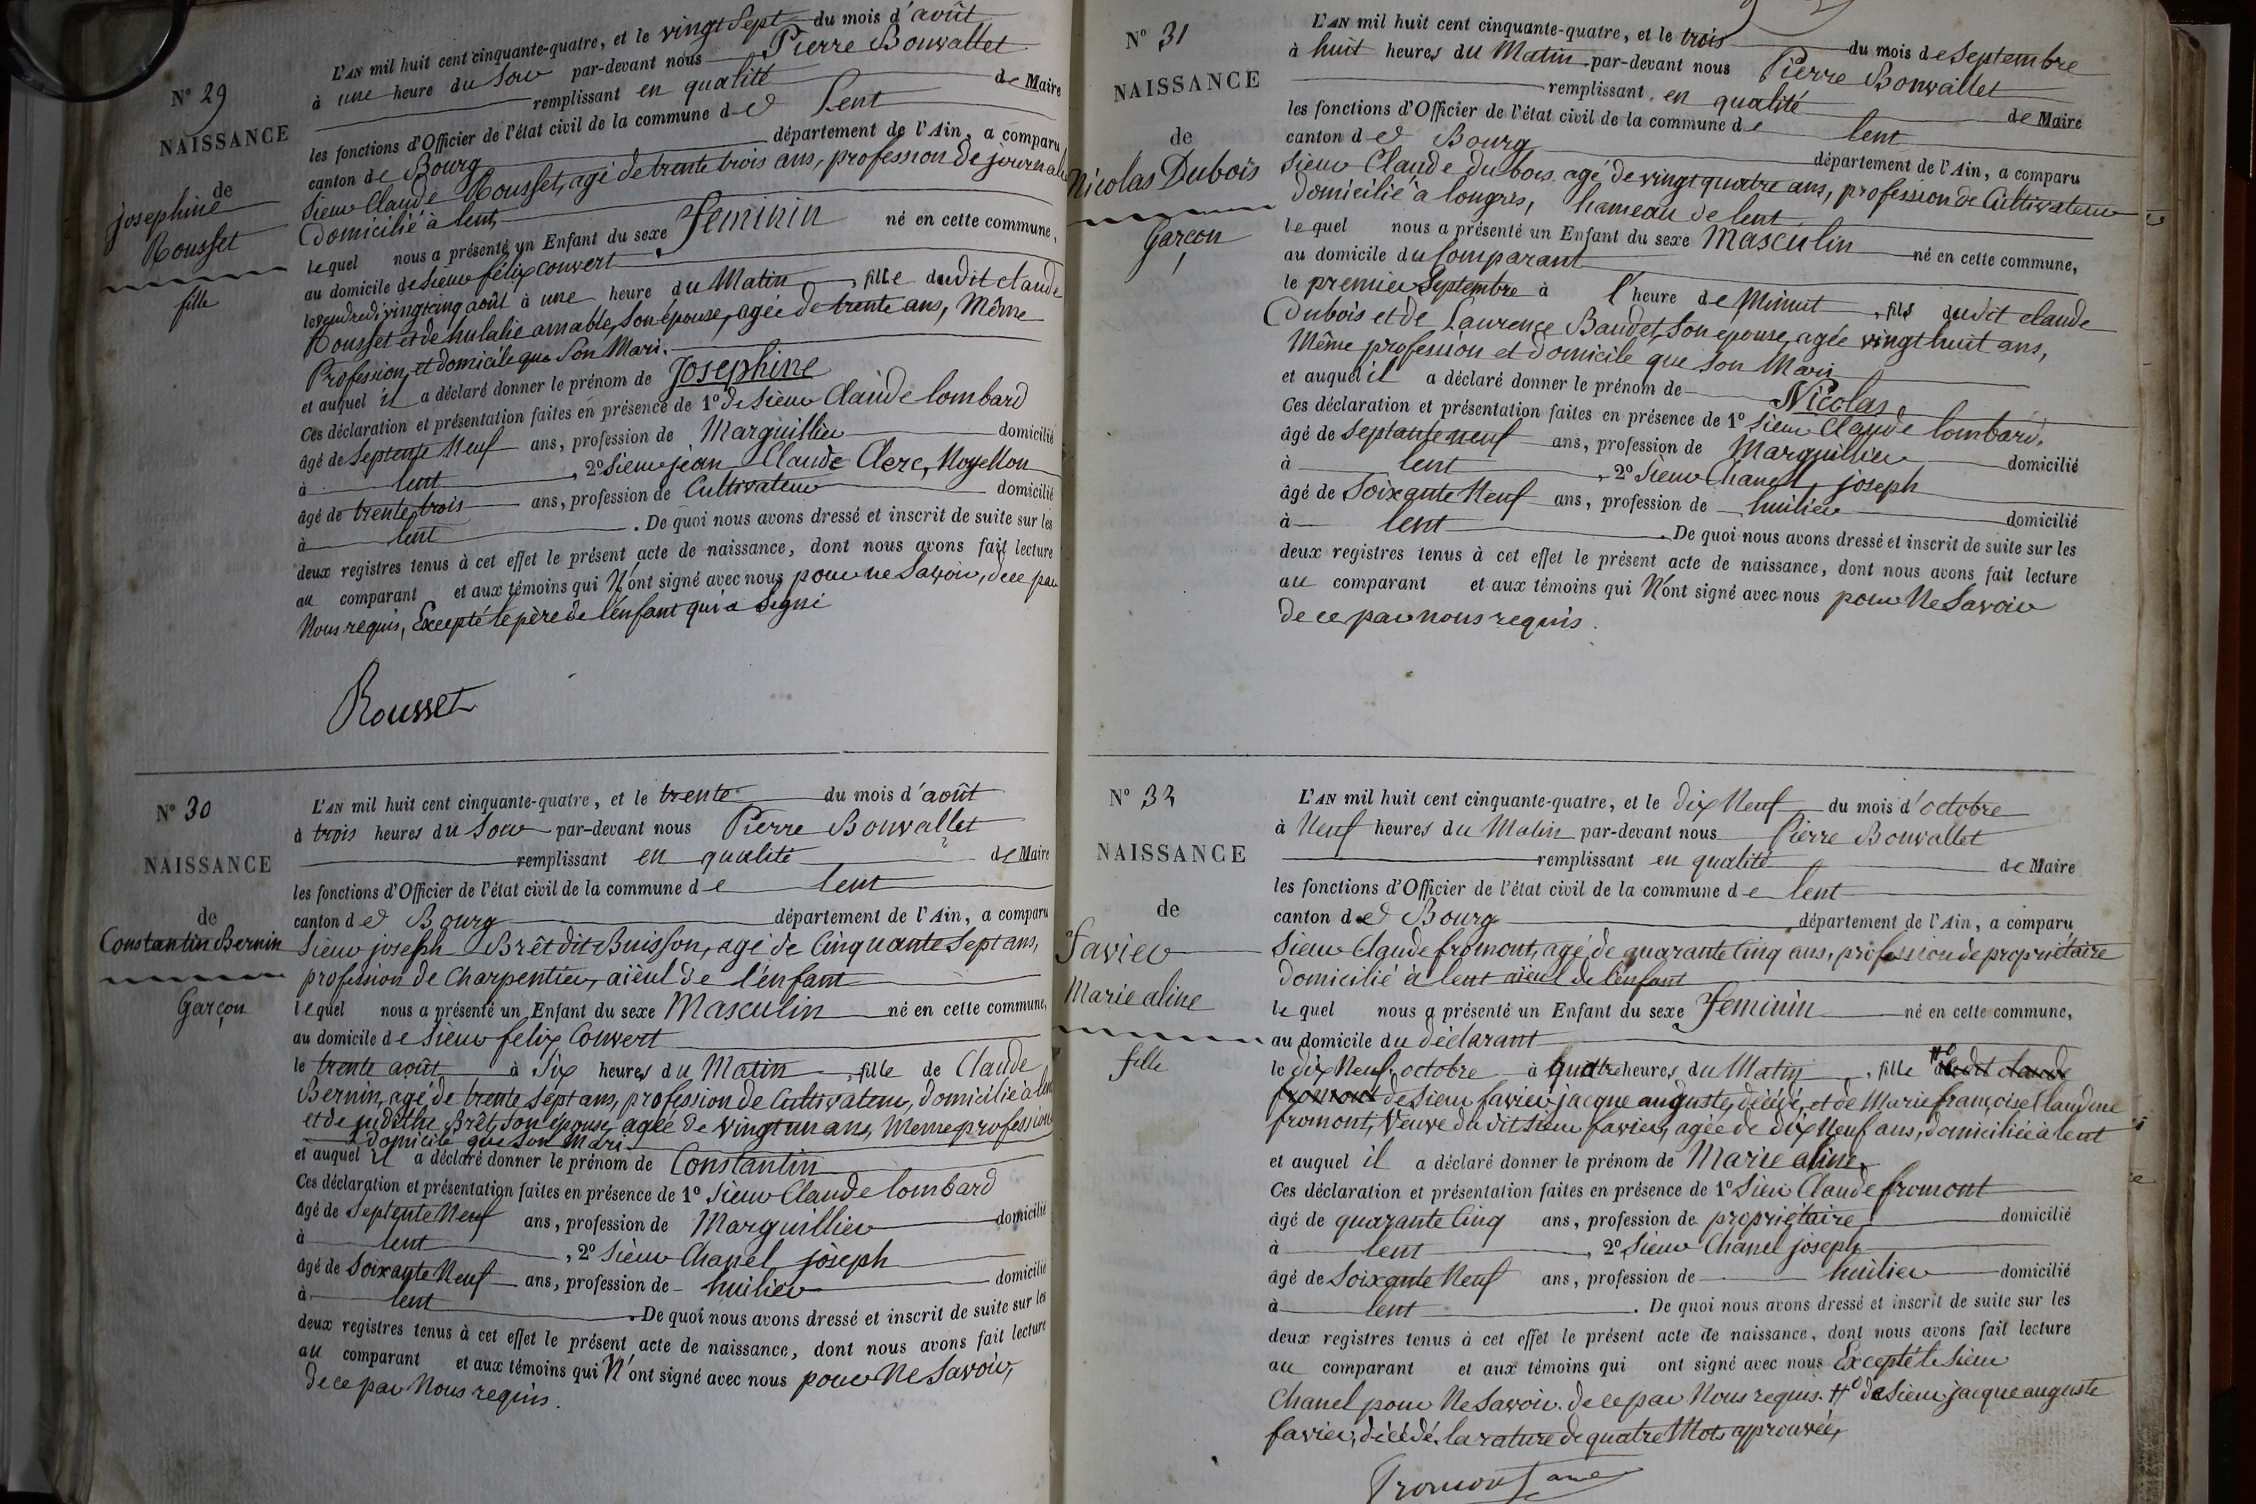 N° 29
NAISSANCE
de
josephine
Rousset
fille
L'AN mil huit cent cinquante-quatre, et le vingt Sept du mois d'août
à une heure du Soir par-devant nous Pierre Bonvallet
remplissant en qualité de Maire
les fonctions d'Officier de l'état civil de la commune de Lent
canton de Bourg département de l'Ain, a comparu
Sieur Claude Rousset, agé de trente trois ans, profession de journalier
domicilié à lent,
lequel nous a présenté un Enfant du sexe Feminin né en cette commune,
au domicile de Sieur félix Convert
le vendredi vingt cinq août à une heure du Matin, fille dudit claude
Rousset et de hulalie amable, Son épouse, agée de trente ans, Même
Profession, et domicile que Son Mari.
et auquel il a déclaré donner le prénom de Josephine
Ces déclaration et présentation faites en présence de 1° de Sieur Claude lombard
âgé de Septente Neuf ans, profession de Marguillier domicilié
à lent, 2° Sieur jean Claude Clerc, Noyellon
âgé de trente trois ans, profession de Cultivateur domicilié
à lent. De quoi nous avons dressé et inscrit de suite sur les
deux registres tenus à cet effet le présent acte de naissance, dont nous avons fait lecture
au comparant et aux témoins qui N'ont signé avec nous pour ne Savoir, de ce par
Nous requis, Excepté le père de l'enfant qui a Signé
Rousset
N° 30
NAISSANCE
de
Constantin Bernin
Garçon
L'AN mil huit cent cinquante-quatre, et le trente du mois d'août
à trois heures du Soir par-devant nous Pierre Bonvallet
remplissant en qualité de Maire
les fonctions d'Officier de l'état civil de la commune de lent
canton de Bourg département de l'Ain, a comparu
Sieur joseph Brêt dit Buisson, agé de Cinquante Sept ans,
profession de Charpentier, aïeul de l'énfant
lequel nous a présenté un Enfant du sexe Masculin né en cette commune,
au domicile de Sieur felix Convert
le trente août à Six heures du Matin, fille de Claude
Bernin, agé de trente Sept ans, profession de Cultivateur, domicilié à lent
et de judithe Brêt, Son épouse, agée de vingt un ans, Meme profession
domicile que Son Mari.
et auquel il a déclaré donner le prénom de Constantin
Ces déclaration et présentation faites en présence de 1° Sieur Claude lombard
âgé de Septente Neuf ans, profession de Marguillier domicilié
à lent, 2° Sieur Chanel jòseph
âgé de Soixante Neuf ans, profession de huilier domicilié
à lent. De quoi nous avons dressé et inscrit de suite sur les
deux registres tenus à cet effet le présent acte de naissance, dont nous avons fait lecture
au comparant et aux témoins qui N'ont signé avec nous pour Ne Savoir,
de ce par Nous requis.
N° 31
NAISSANCE
de
Nicolas Dubois
Garçon
L'AN mil huit cent cinquante-quatre, et le trois du mois de Septembre
à huit heures du Matin par-devant nous Pierre Bonvallet
remplissant en qualité de Maire
les fonctions d'Officier de l'état civil de la commune de lent
canton de Bourg département de l'Ain, a comparu
Sieur Claude dubois agé de vingt quatre ans, profession de Cultivateur
domicilié à longres, hameau de lent
lequel nous a présenté un Enfant du sexe Masculin né en cette commune,
au domicile du Comparant
le premier Septembre à l'heure de Minuit, fils dudit claude
dubois et de Laurence Baudet, Son epouse, agée vingt huit ans,
Même profession et domicile que Son Mari
et auquel il a déclaré donner le prénom de Nicolas
Ces déclaration et présentation faites en présence de 1° Sieur Claude lombard.
âgé de Septante neuf ans, profession de Marguillier domicilié
à lent, 2° Sieur Chanel joseph
âgé de Soixante Neuf ans, profession de huilier domicilié
à lent. De quoi nous avons dressé et inscrit de suite sur les
deux registres tenus à cet effet le présent acte de naissance, dont nous avons fait lecture
au comparant et aux témoins qui N'ont signé avec nous pour Ne Savoir
de ce par nous requis.
N° 32
NAISSANCE
de
Favier
Marie aline
fille
L'AN mil huit cent cinquante-quatre, et le dix Neuf du mois d'octobre
à Neuf heures du Matin par-devant nous Pierre Bonvallet
remplissant en qualité de Maire
les fonctions d'Officier de l'état civil de la commune de lent
canton de Bourg département de l'Ain, a comparu
Sieur Claude fromont, agé de quarante Cinq ans, profession de propriétaire
domicilié à lent aïeul de l'enfant
lequel nous a présenté un Enfant du sexe Feminin né en cette commune,
au domicile du déclarant
le dix Neuf octobre à quatre heures du Matin, fille dudit claude
fromont de Sieur favier jacque auguste, décédé, et de Marie françoise Claudine
fromont, Veuve du dit Sieur favier, agée de dix Neuf ans, domiciliée à lent
et auquel il a déclaré donner le prénom de Marie aline
Ces déclaration et présentation faites en présence de 1° Sieur Claude fromont
âgé de quarante Cinq ans, profession de propriétaire domicilié
à lent, 2° Sieur Chanel joseph
âgé de Soixante Neuf ans, profession de huilier domicilié
à lent. De quoi nous avons dressé et inscrit de suite sur les
deux registres tenus à cet effet le présent acte de naissance, dont nous avons fait lecture
au comparant et aux témoins qui ont signé avec nous Excepté le Sieur
Chanel pour Ne Savoir. de ce par Nous requis. # de Sieur jacque auguste
favier, décédé. la rature de quatre Mots approuvée,
Fromont